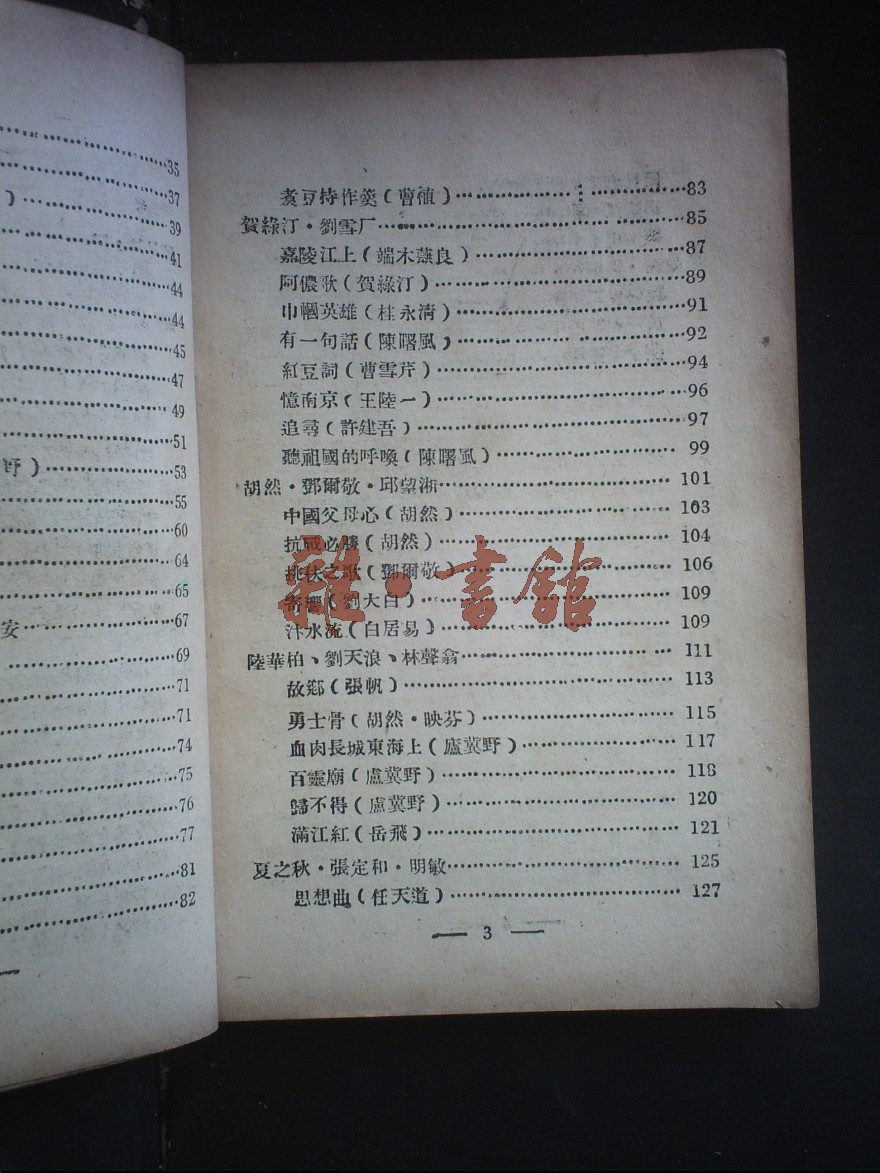 35
37
)
39
41
44
44
45
47
49
51
野)……53
55
60
64
65
安……67
69
71
71
74
75
76
77
81
82
煮豆持作羹(曹植)……83
賀綠汀·劉雪厂……85
嘉陵江上(端木蕻良)……87
阿儂歌(賀綠汀)……89
巾幗英雄(桂永淸)……91
有一句話(陳曙風)……92
紅豆詞(曹雪芹)……94
憶南京(王陸一)……96
追尋(許建吾)……97
聽祖國的呼喚(陳曙風)……99
胡然·鄧爾敬·邱望湘……101
中國父母心(胡然)……103
抗戰必勝(胡然)……104
挑伕之歌(鄧爾敬)……106
(劉大白)……109
汴水流(白居易)……109
陸華柏、劉天浪、林聲翕……111
故鄉(張帆)……113
勇士骨(胡然·映芬)……115
血肉長城東海上(盧冀野)……117
百靈廟(盧冀野)……118
歸不得(盧冀野)……120
滿江紅(岳飛)……121
夏之秋·張定和·明敏……125
思想曲(任天道)……127
— 3 —
雜·書館